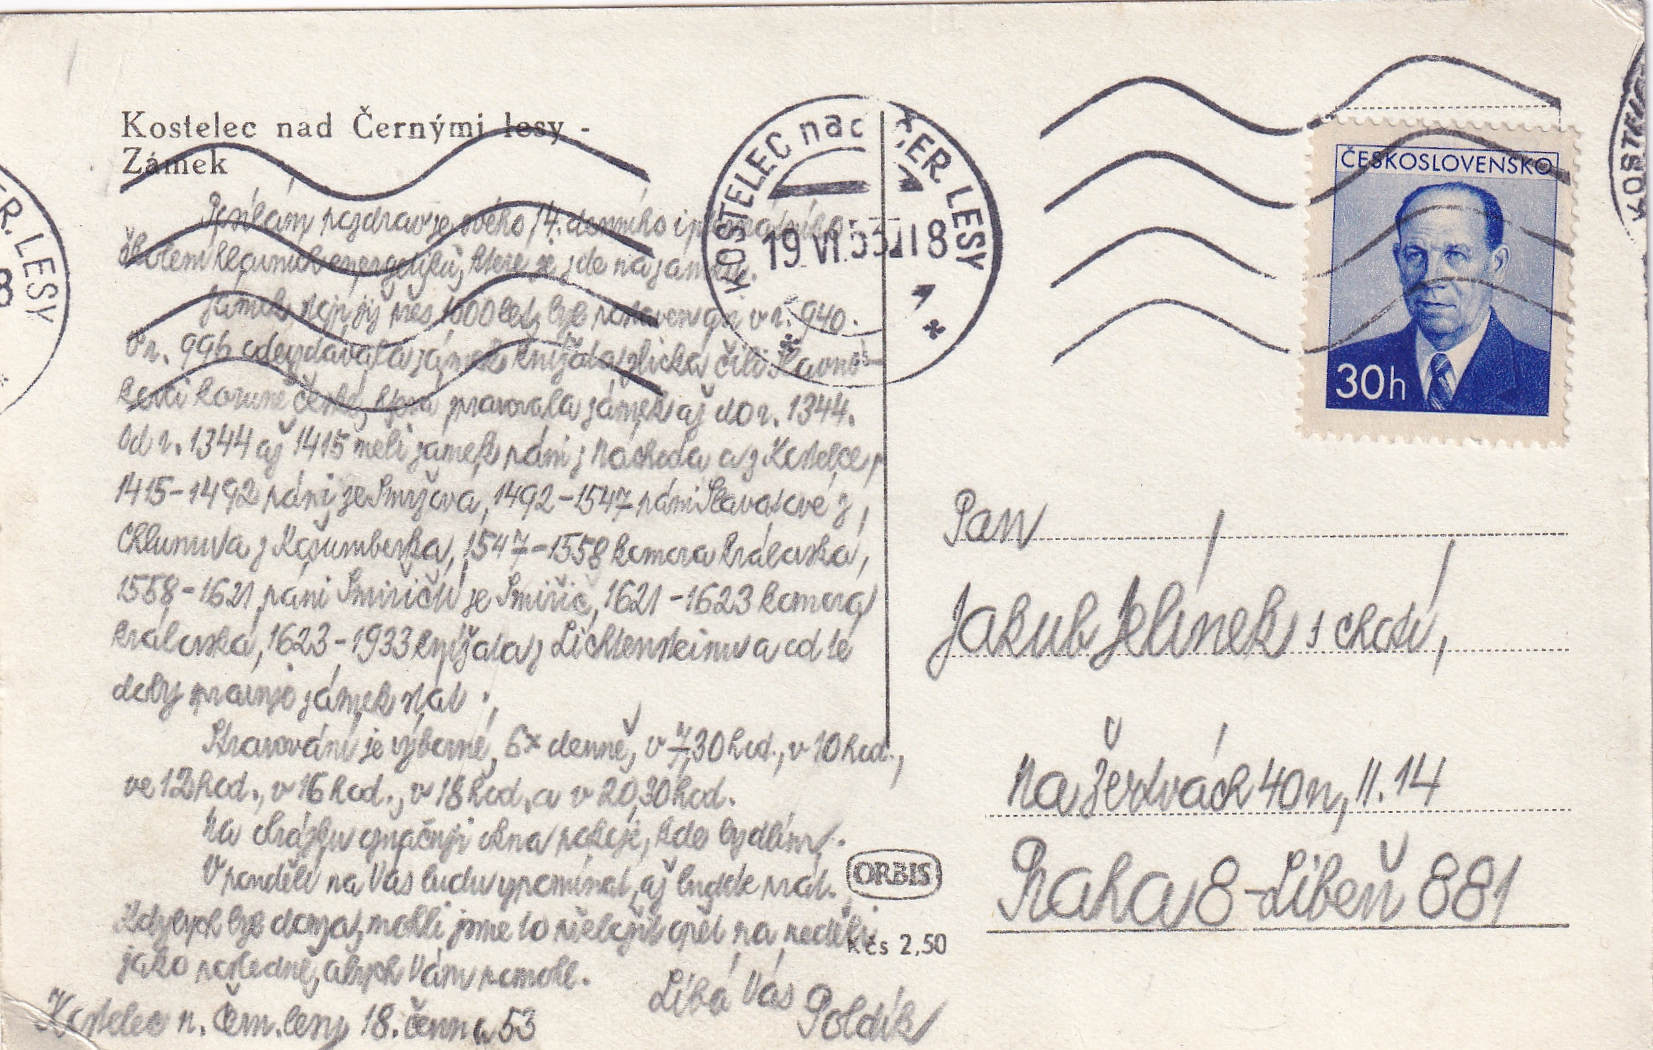 Kostelec nad Černými lesy -
Zámek
KOSTELEC nad ČER. LESY
19 VI 53 18
ČER. LESY
8
ČESKOSLOVENSKO
30h
Posílám pozdrav ze svého 14. denního i
školení hlavních energetiků, které je zde na zámku.
Zámek, nyní již přes 1000 let, byl postaven v r. 940.
V r. 996 odevzdávala zámek knížata zlická čili Slavní-
kovci koruně české, která spravovala zámek až do r. 1344.
Od r. 1344 až 1415 měli zámek páni z Náchoda a z Kostelce,
1415-1492 páni ze Smržova, 1492-1547 páni Slavatové z
Chlumu a z Košumberka, 1547-1558 komora královská,
1558-1621 páni Smiřičtí ze Smiřic, 1621-1623 komora
královská, 1623-1933 knížata z Lichtensteinu a od té
doby spravuje zámek stát.
Stravování je výborné, 6x denně, v 7,30 hod., v 10 hod.,
ve 12 hod., v 16 hod., v 18 hod. a v 20,30 hod.
Na obrázku označuji okna pokoje, kde bydlím.
V pondělí na Vás budu vzpomínat, až budete prát.
Kdybych byl doma, mohli jsme to přeložit opět na neděli
jako posledně, abych Vám pomohl.
Líbá Vás Poldík
Kostelec n. Čern. lesy 18. června 53
ORBIS
Kčs 2,50
Pan
Jakub Jelínek s chotí,
Na Žertvách 40n, II. 14
Praha 8-Libeň 881